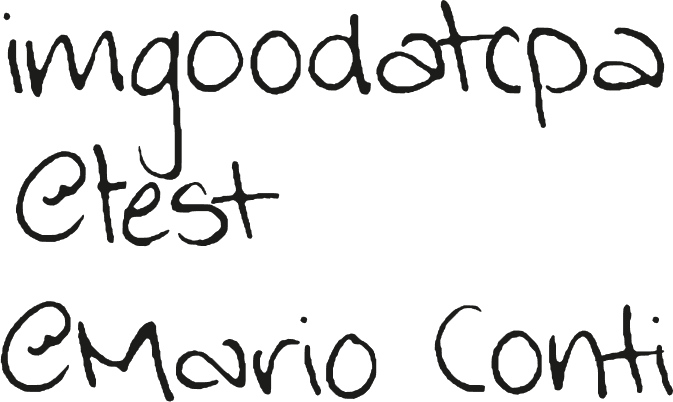 imgoodatcpa
@test
@Mario Conti